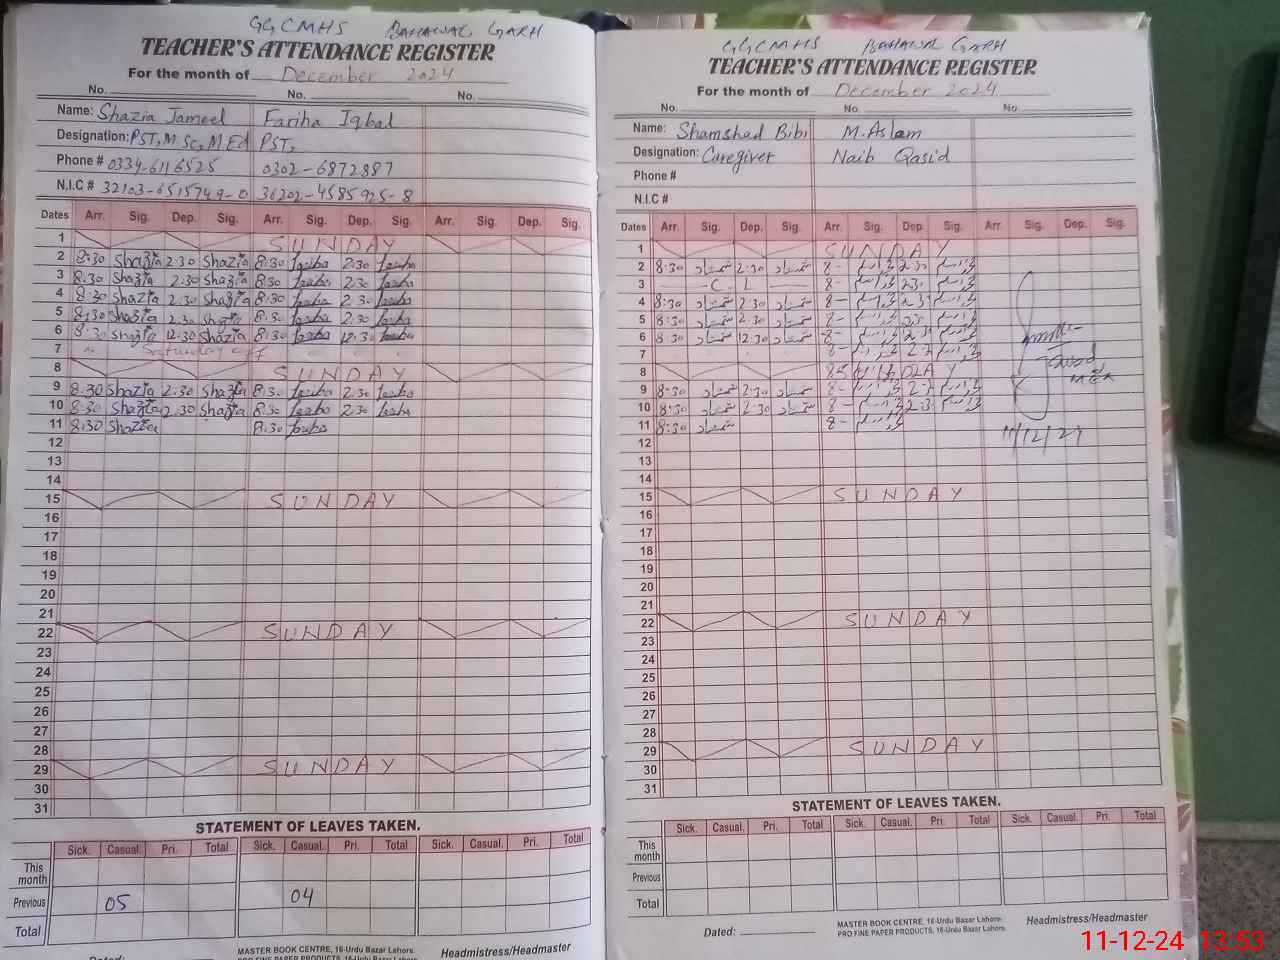 GGCMHS BAHAWAL GARH
TEACHER'S ATTENDANCE REGISTER
For the month of December 2024
No. No. No.
Name: Shazia Jameel Fariha Iqbal
Designation: PST, M.Sc, M.Ed PST,
Phone # 0334-6116525 0302-6872887
N.I.C # 32103-6515749-0 36202-4585925-8
Dates Arr. Sig. Dep. Sig. Arr. Sig. Dep. Sig. Arr. Sig. Dep. Sig.
1 SUNDAY
2 8:30 Shazia 2:30 Shazia 8:30 2:30
3 8:30 Shazia 2:30 Shazia 8:30 2:30
4 8:30 Shazia 2:30 Shazia 8:30 2:30
5 8:30 Shazia 2:30 Shazia 8:30 2:30
6 8:30 Shazia 12:30 Shazia 8:30 12:30
7 Saturday off
8 SUNDAY
9 8:30 Shazia 2:30 Shazia 8:30 2:30
10 8:30 Shazia 2:30 Shazia 8:30 2:30
11 8:30 Shazia 8:30
12
13
14
15 SUNDAY
16
17
18
19
20
21
22 SUNDAY
23
24
25
26
27
28
29 SUNDAY
30
31
STATEMENT OF LEAVES TAKEN.
Sick. Casual. Pri. Total Sick. Casual. Pri. Total Sick. Casual. Pri. Total
This month
Previous 05 04
Total
MASTER BOOK CENTRE, 16-Urdu Bazar Lahore.
PRO FINE PAPER PRODUCTS, 16-Urdu Bazar Lahore.
Headmistress/Headmaster
Dated:
GGCMHS BAHAWAL GARH
TEACHER'S ATTENDANCE REGISTER
For the month of December 2024
No. No. No.
Name: Shamshad Bibi M. Aslam
Designation: Caregiver Naib Qasid
Phone #
N.I.C #
Dates Arr. Sig. Dep. Sig. Arr. Sig. Dep. Sig. Arr. Sig. Dep. Sig.
1 SUNDAY
2 8:30 شمشاد 2:30 شمشاد 8-
3 C. L 8-
4 8:30 شمشاد 2:30 شمشاد 8-
5 8:30 شمشاد 2:30 شمشاد 8-
6 8:30 شمشاد 12:30 شمشاد 8-
7 8-
8
9 8:30 شمشاد 2:30 شمشاد 8-
10 8:30 شمشاد 2:30 شمشاد 8-
11 8:30 شمشاد 8-
11/12/24
12
13
14
15 SUNDAY
16
17
18
19
20
21
22 SUNDAY
23
24
25
26
27
28
29 SUNDAY
30
31
STATEMENT OF LEAVES TAKEN.
Sick. Casual. Pri. Total Sick. Casual. Pri. Total Sick. Casual. Pri. Total
This month
Previous
Total
Dated:
MASTER BOOK CENTRE, 16-Urdu Bazar Lahore.
PRO FINE PAPER PRODUCTS, 16-Urdu Bazar Lahore.
Headmistress/Headmaster
11-12-24 13:53